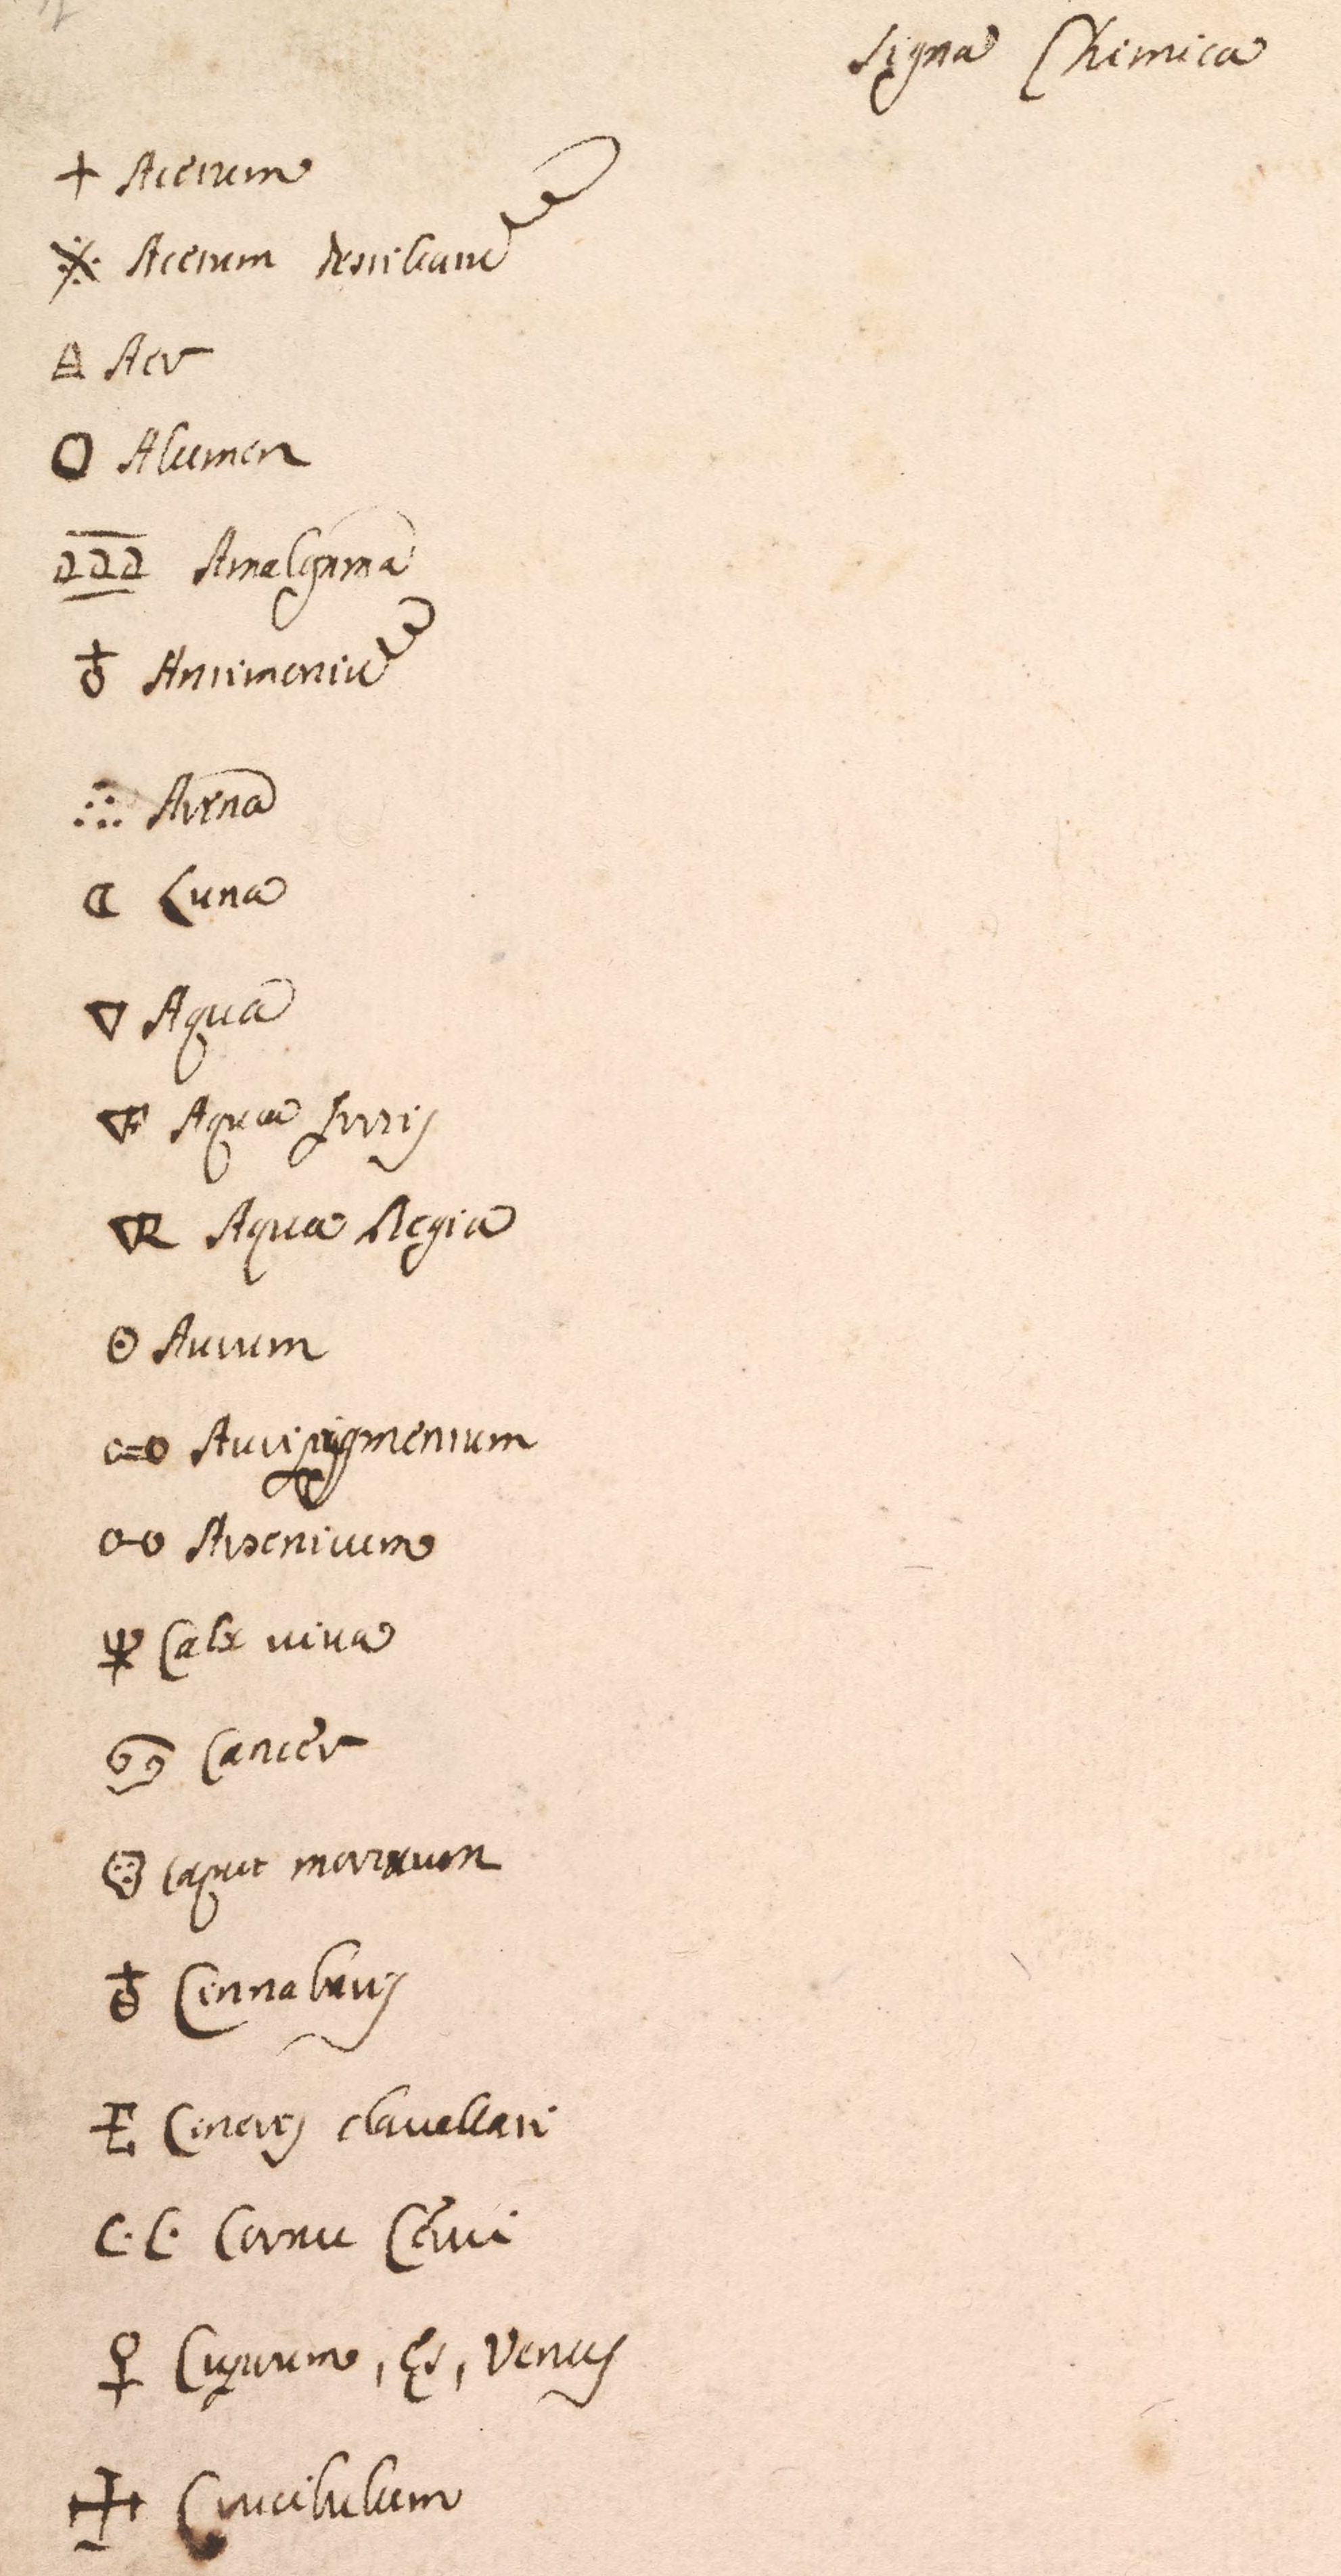 Signa Chimica
+ Acetum
Acetum destillatu
🜁 Aer
O Alumen
aaa Amalgama
♁ Antimoniu
Arena
☾ Luna
🜄 Aqua
🜅 Aqua fortis
🜆 Aqua Regia
☉ Aurum
o=o Auripigmentum
o-o Arsenicum
Calx viva
♋ Cancer
Caput mortuum
Cinnabaris
E Cineres clavellati
C. C. Cornu Cervi
♀ Cuprum, Es, Venus
Crucibulum